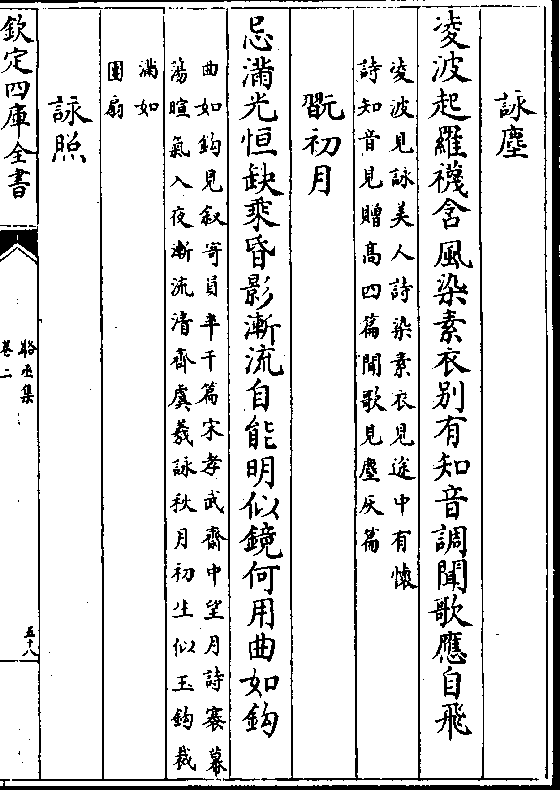 詠塵
凌波起羅襪含風染素衣别有知音調聞歌應自飛
凌波見詠美人詩染素衣見途中有懷
詩知音見贈高四篇聞歌見塵灰篇
翫初月
忌滿光恒缺乘昏影漸流自能明似鏡何用曲如鈎
曲如鈎見叙寄員半千篇宋孝武齋中望月詩褰幕
蕩暄氣入夜漸流清齊虞羲詠秋月初生似玉鈎裁
滿如
團扇
詠照
欽定四庫全書
駱丞集
卷二
五十八